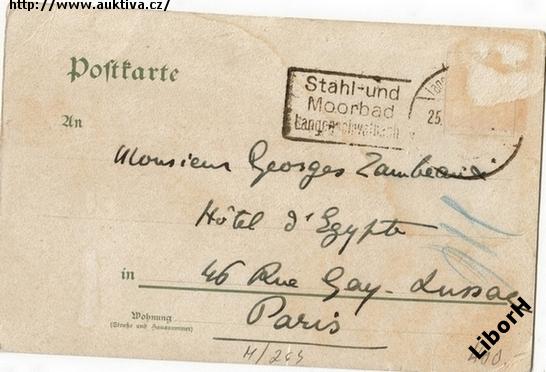 http://www.auktiva.cz/
Postkarte
Stahl-und
Moorbad
Langenschwalbach
25.
An
Monsieur Georges
Hôtel d'Egypte
in 46 Rue Gay-Lussac
Paris
Wohnung
(Straße und Hausnummer)
LiborH